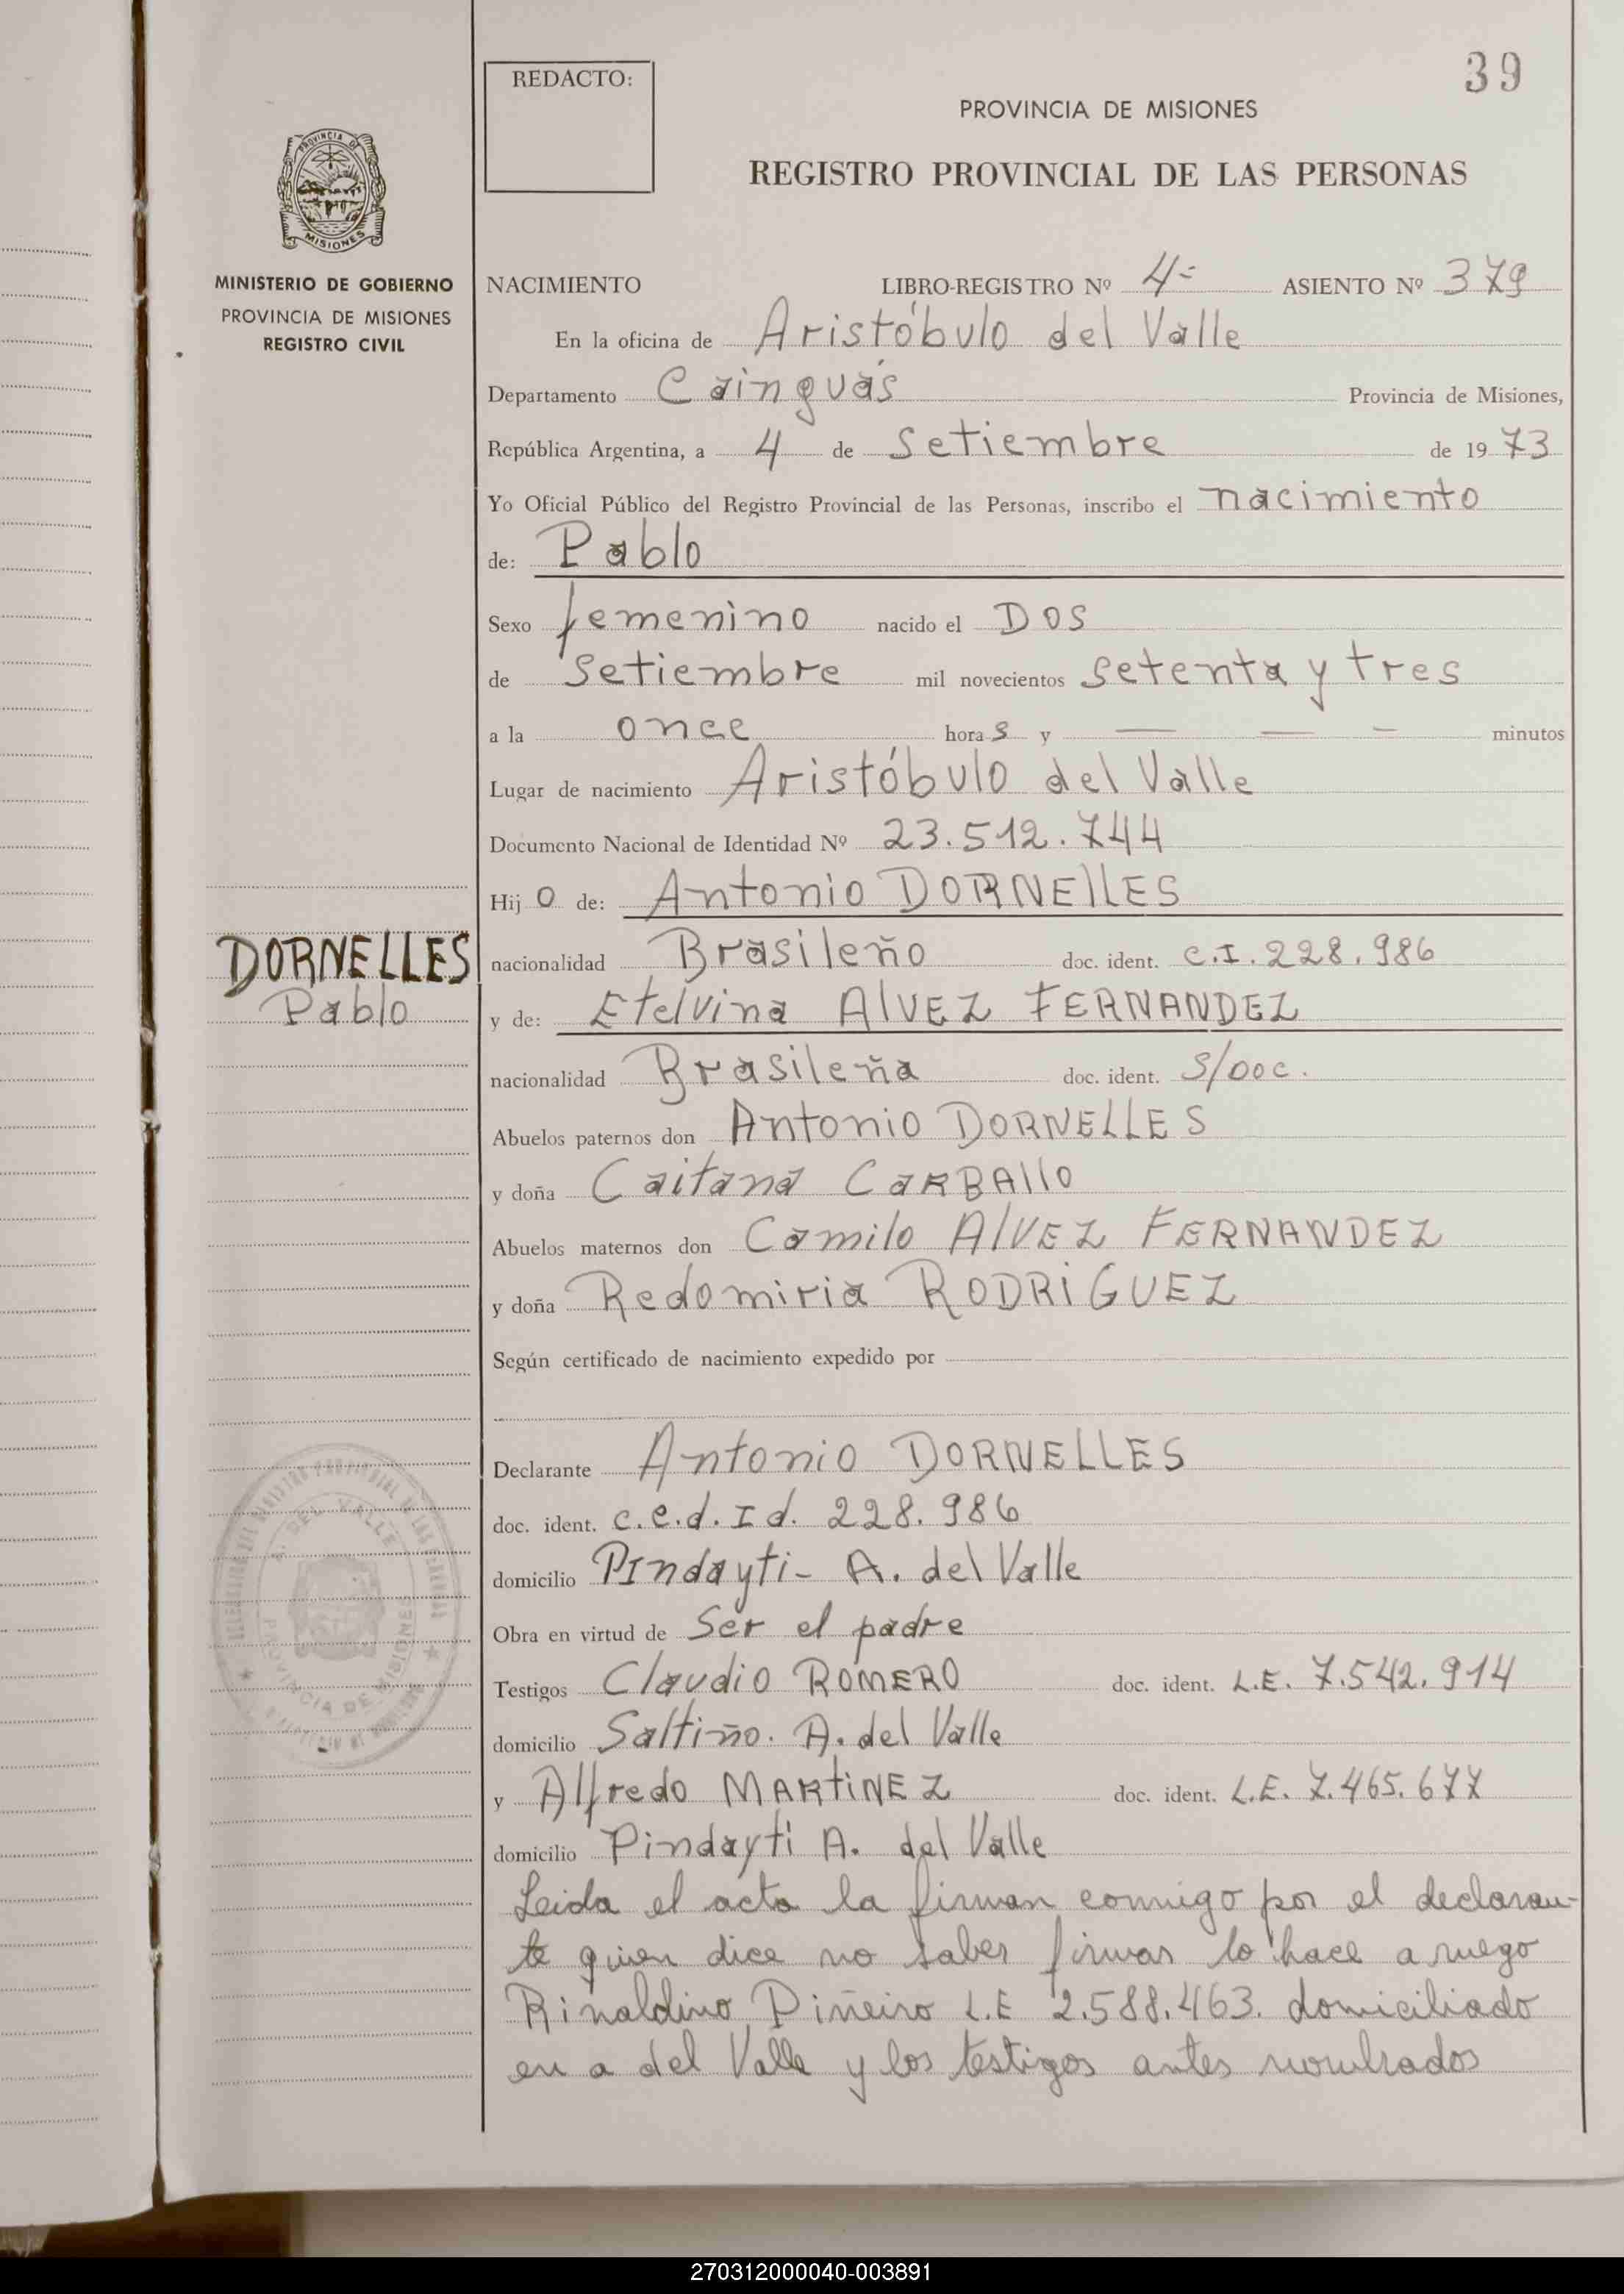 39
REDACTO:
PROVINCIA DE MISIONES
REGISTRO PROVINCIAL DE LAS PERSONAS
PROVINCIA DE
MISIONES
MINISTERIO DE GOBIERNO
PROVINCIA DE MISIONES
REGISTRO CIVIL
NACIMIENTO LIBRO-REGISTRO Nº 4= ASIENTO Nº 379
En la oficina de Aristóbulo del Valle
Departamento Cainguás Provincia de Misiones,
República Argentina, a 4 de Setiembre de 1973
Yo Oficial Público del Registro Provincial de las Personas, inscribo el nacimiento
de: Pablo
Sexo femenino nacido el Dos
de Setiembre mil novecientos setenta y tres
a la once horas y — — — minutos
Lugar de nacimiento Aristóbulo del Valle
Documento Nacional de Identidad Nº 23.512.744
Hijo de: Antonio DORNELLES
DORNELLES
Pablo
nacionalidad Brasileño doc. ident. C.I. 228.986
y de: Etelvina ALVEZ FERNANDEZ
nacionalidad Brasileña doc. ident. S/Doc.
Abuelos paternos don Antonio DORNELLES
y doña Caitana CARBALLO
Abuelos maternos don Camilo ALVEZ FERNANDEZ
y doña Redomiria RODRIGUEZ
Según certificado de nacimiento expedido por
Declarante Antonio DORNELLES
doc. ident. C.e.d. Id. 228.986
domicilio Pindayti- A. del Valle
Obra en virtud de Ser el padre
Testigos Claudio ROMERO doc. ident. L.E. 7.542.914
domicilio Saltiño. A. del Valle
y Alfredo MARTINEZ doc. ident. L.E. 7.465.677
domicilio Pindayti A. del Valle
Leida el acta la firman conmigo por el declaran-
te quien dice no saber firmar lo hace a ruego
Rinaldino Piñeiro L.E 2.588.463. domiciliado
en a del Valle y los testigos antes nombrados
A. DEL VALLE
PROVINCIA DE MISIONES
270312000040-003891